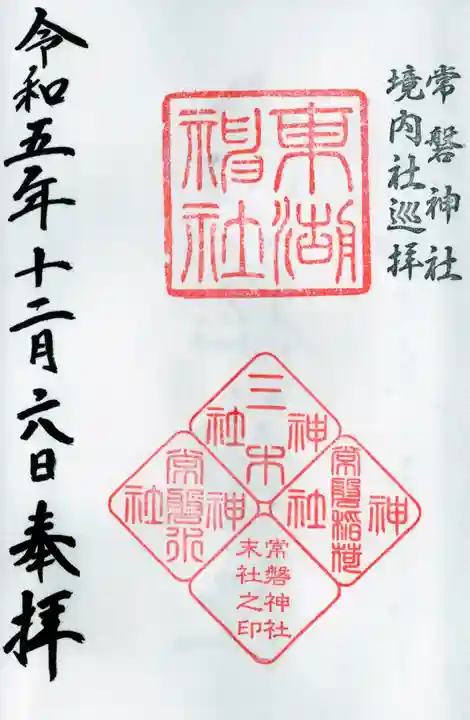 常磐神社
境内社巡拝
東湖
神社
三木
神社
常磐稲荷
神社
常磐水
神社
常磐神社
末社之印
令和五年十二月六日奉拝